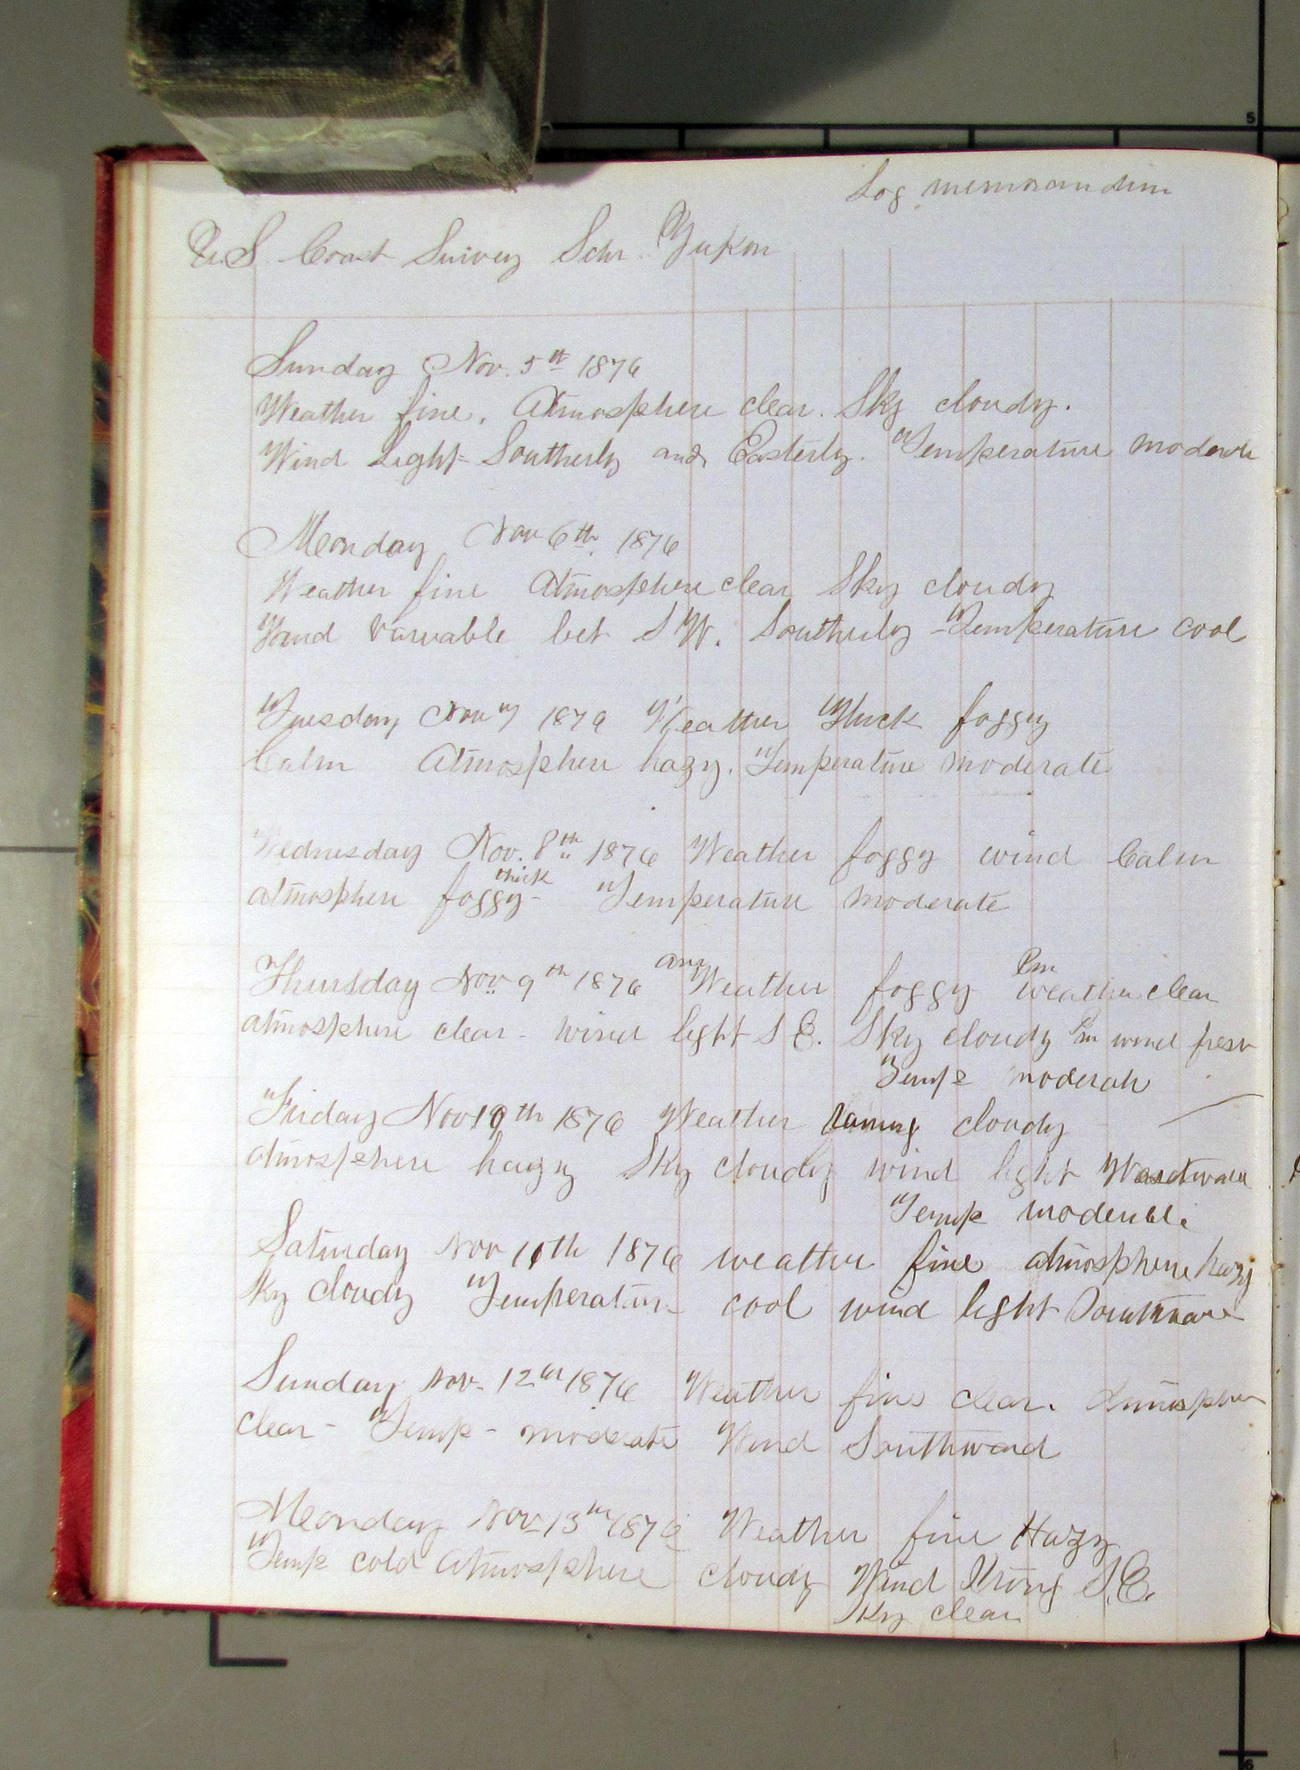 Log memorandum
U.S. Coast Survey Schr. Yukon
Sunday Nov. 5th 1876
Weather fine. Atmosphere clear. Sky cloudy.
Wind Light Southerly and Easterly. Temperature moderate
Monday Nov 6th 1876
Weather fine Atmosphere clear Sky cloudy
Wind variable bet S W. Southerly - Temperature cool
Tuesday Nov 7 1876 Weather Thick foggy
Calm Atmosphere hazy. Temperature moderate
Wednesday Nov. 8th 1876 Weather foggy wind Calm
thick
atmosphere foggy - Temperature moderate
Pm
Thursday Nov 9th 1876 Weather foggy weather clear
atmosphere clear - wind light S E. Sky cloudy Pm wind fresh
Temp moderate
Friday Nov 10th 1876 Weather cloudy
atmosphere hazy Sky cloudy wind light
Temp moderate
Saturday Nov 11th 1876 weather fine atmosphere hazy
Sky cloudy Temperature cool wind light Southward
Sunday Nov. 12th 1876 Weather fine clear. Atmosphere
clear - Temp - moderate Wind Southward
Monday Nov 13th 1876 Weather fine Hazy
Temp cold Atmosphere cloudy Wind Strong S.E.
Sky clear